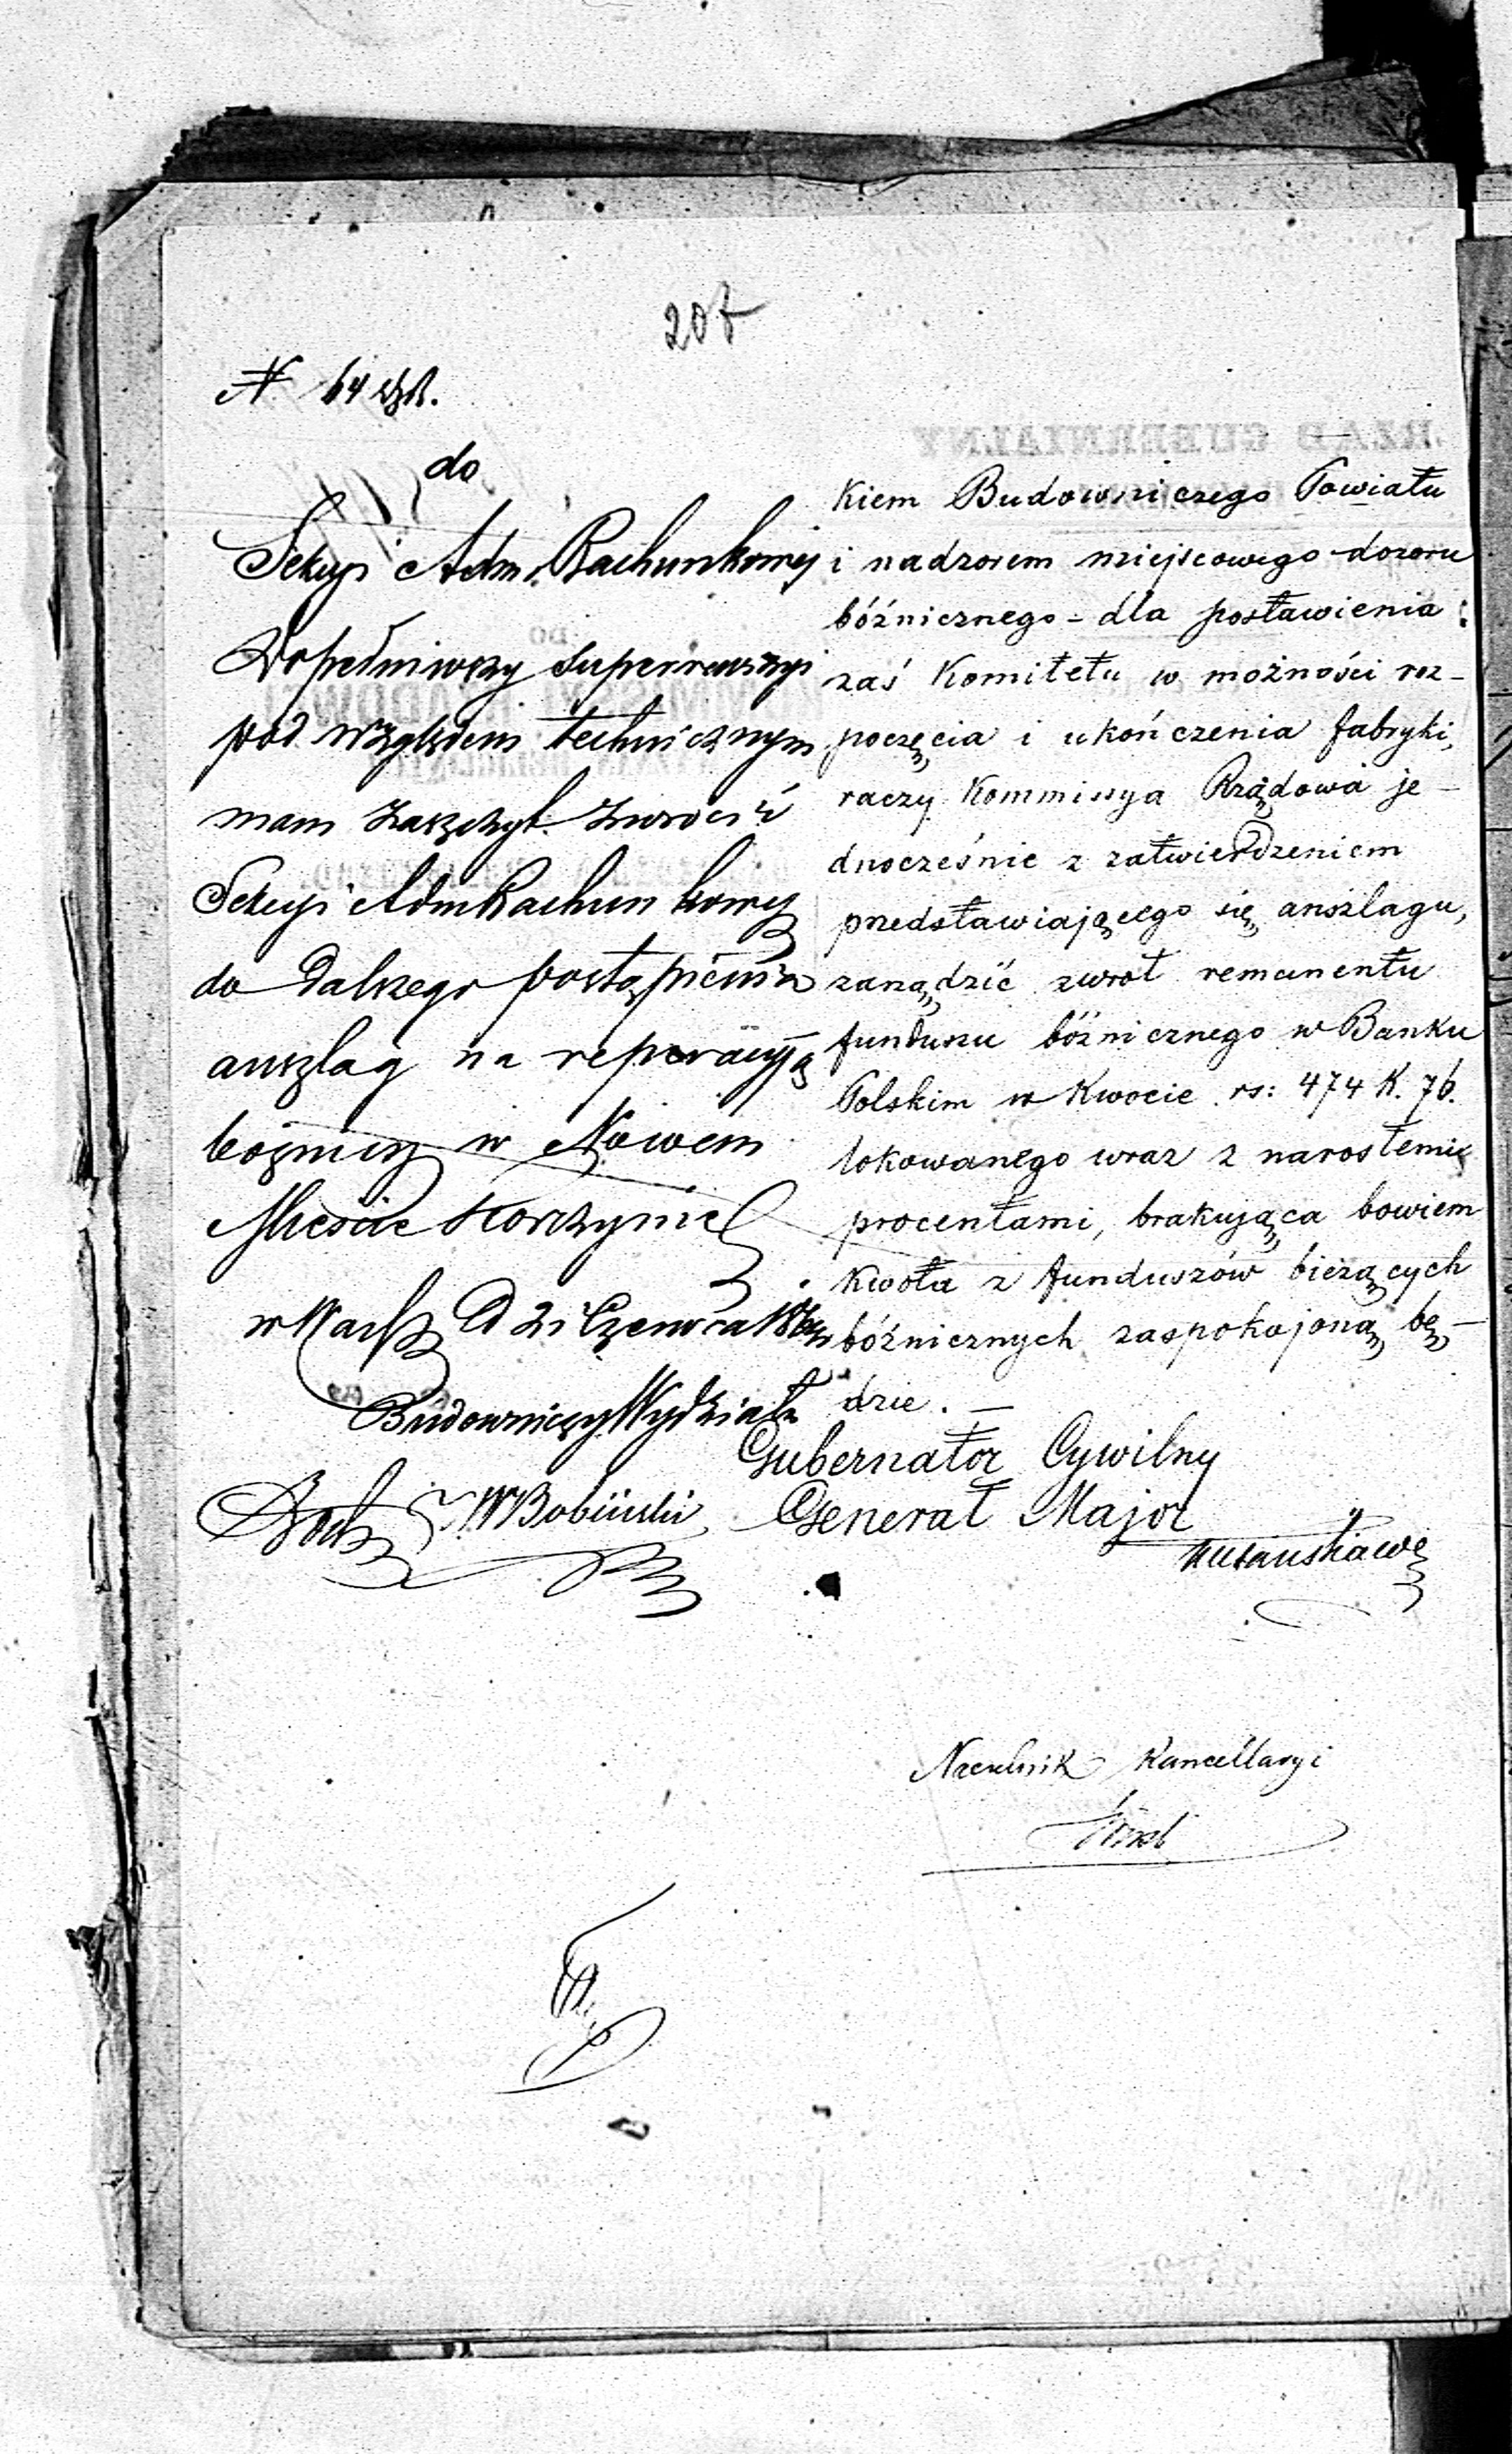 207
N. 64
do
Sekcyi Adm. Rachunkowej
Dopełniwszy superrewizyi
pod względem technicznym
mam zaszczyt zwrócić
Sekcyi Adm Rachunkowej
do dalszego postąpienia
anszlag na reperacyją
bożnicy w Nowem
Mieście Korczynie
w Warsz d 21 Czerwca
Budowniczy Wydziału
W Bobiński
kiem Budowniczego Powiatu
i nadzorem miejscowego dozoru
bóźnicznego - dla postawienia
zaś Komitetu w możności roz-
poczęcia i ukończenia fabryki,
raczy Kommissya Rządowa je-
dnocześnie z zatwierdzeniem
przedstawiającego się anszlagu,
zarządzić zwrot remanentu
funduszu bóżnicznego w Banku
Polskim w Kwocie rs: 474 K. 76.
lokowanego wraz z narosłemi
procentami, brakująca bowiem
Kwota z funduszów bieżących
bóźnicznych zaspokojoną bę-
dzie. —
Gubernator Cywilny
Generał Major
Naczelnik Kancellaryi